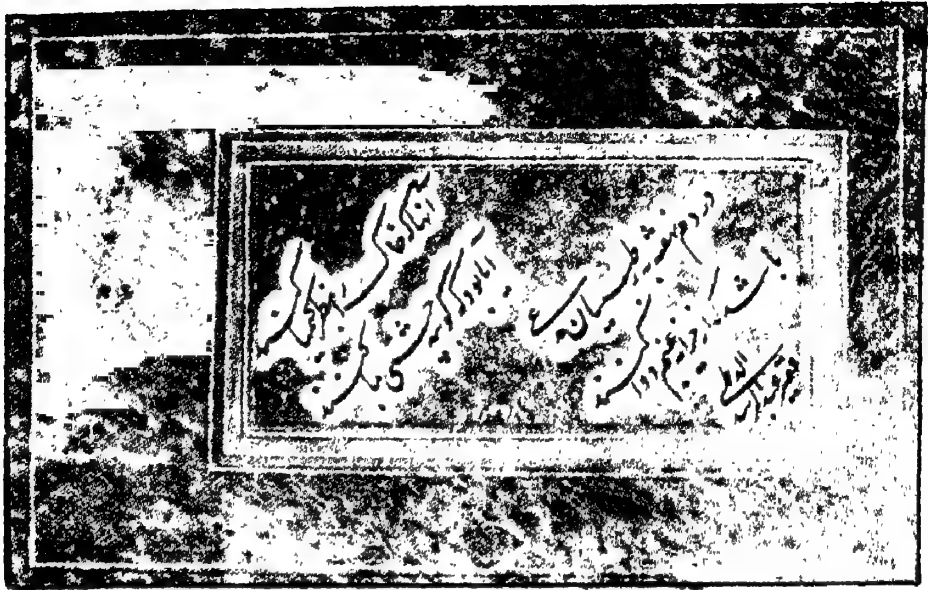 آنها که خاک را بنظر کیمیا کنند
آیا بود که گوشه چشمی بما کنند
دردم نهفته به ز طبیبان مدعی
باشد که از خزانه غیبم دوا کنند
عبدالرشید الدیلمی